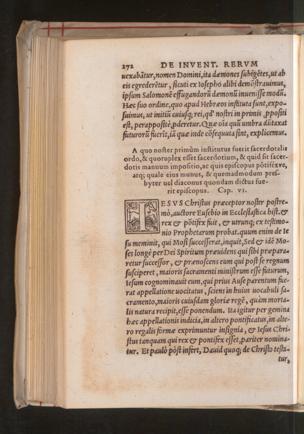 272 DE INVENT. RERVM
uexabãtur, nomen Domini, ita dæmones subigẽtes, ut ab
eis egrederẽtur, sicuti ex Iosepho alibi demõstrauimus,
ipsum Salomonẽ effugandorũ dæmonũ inuenisse modũ.
Hæc suo ordine, quo apud Hebræos instituta sunt, expo-
suimus, ut initiũ cuiusq; rei, qđ nostri in primis propositi
est, perappositè põderetur. Quæ oĩa quũ umbra dũtaxat
futurorũ fuerit, iã quæ inde cõsequuta sint, explicemus.
A quo noster primùm institutus fuerit sacerdotalis
ordo, & quotuplex esset sacerdotium, & quid sit sacer-
dotis manuum impositio, ac quis episcopus põtifexue,
atq; quale eius munus, & quemadmodum pres-
byter uel diaconus quondam dictus fue-
rit episcopus. Cap. VI.
IESVS Christus præceptor noster postre-
mò, auctore Eusebio in Ecclesiastica hist. &
rex & põtifex fuit, & utrunq; ex testimo-
nio Prophetarum probat. quum enim de Ie
su meminit, qui Mosi successerat, inquit, Sed & idẽ Mo-
ses longè per Dei Spiritum præuidens qui sibi præpara-
retur successor, & prænoscens eum qui post se regnum
susciperet, maioris sacramenti ministrum esse futurum,
Iesum cognominauit eum, qui prius Ause parentum fue-
rat appellatione uocitatus, sciens in huius uocabuli sa-
cramento, maioris cuiusdam gloriæ regẽ, quàm morta-
lis natura recipit, esse ponendum. Ita igitur per gemina
hæc appellationis indicia, in altero pontificatus, in alte-
ro regalis formæ exprimuntur insignia, & Iesus Chri-
stus tanquam qui rex & pontifex esset, pariter nomina-
tur. Et paulò pòst infert, Dauid quoq; de Christo testa-
tur,